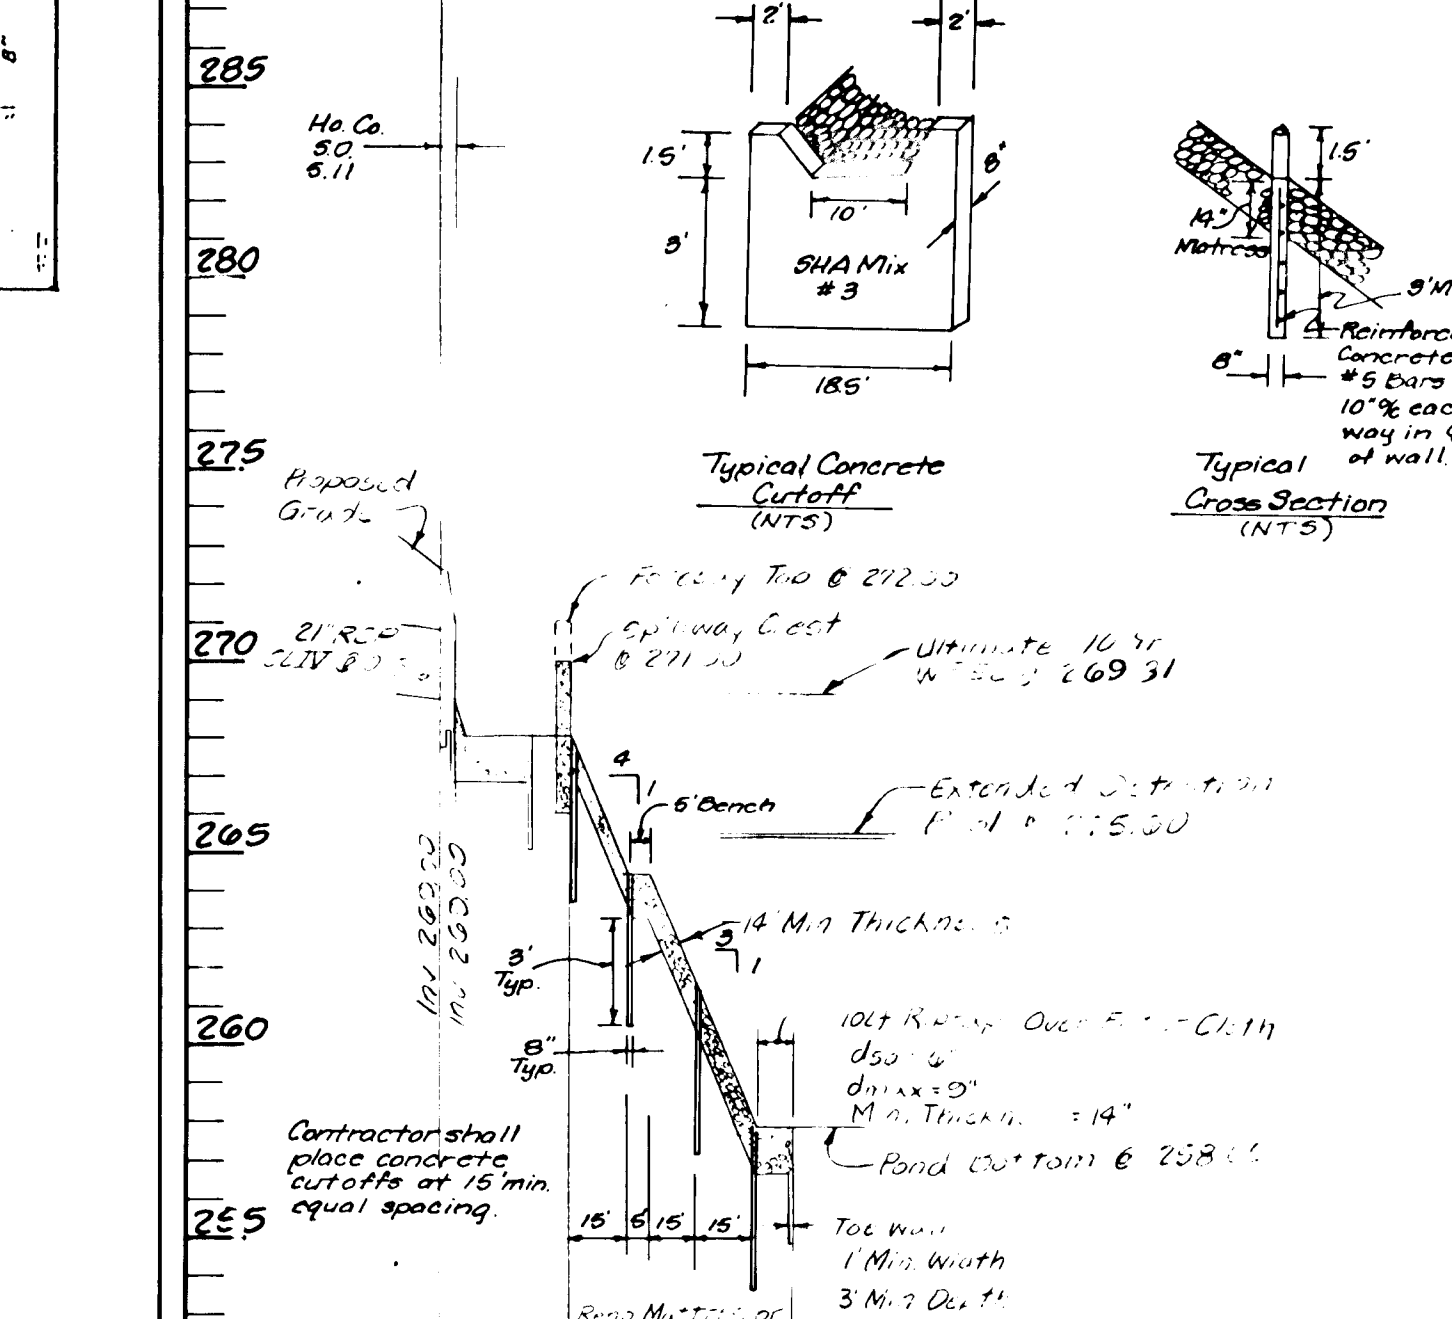 8"
285
280
275
270
265
260
255
Ho. Co.
S.D.
5.11
2'
2'
1.5'
3'
10'
8"
SHA Mix
#3
18.5'
Typical Concrete
Cutoff
(NTS)
1.5'
14"
Matress
8"
3'M
Reinforce
Concrete
#5 Bars
10" % eac
way in
of wall.
Typical
Cross Section
(NTS)
Proposed
Grade
Top @ 272.00
Spillway Crest
@ 271.00
21" RCP
CLIV
Ultimate 10 Yr
269.31
4
1
5' Bench
Extended Detention
Inv 269.00
14" Min Thickness
3
1
3'
Typ.
8"
Typ.
10LF Riprap Over Cloth
d50 = 6"
dmax = 9"
Min. Thickn = 14"
Pond Bottom @ 258
Contractor shall
place concrete
cutoffs at 15' min.
equal spacing.
15' 5' 15' 15'
Toe Wall
1' Min. Width
3' Min Depth
Reno Mattress or